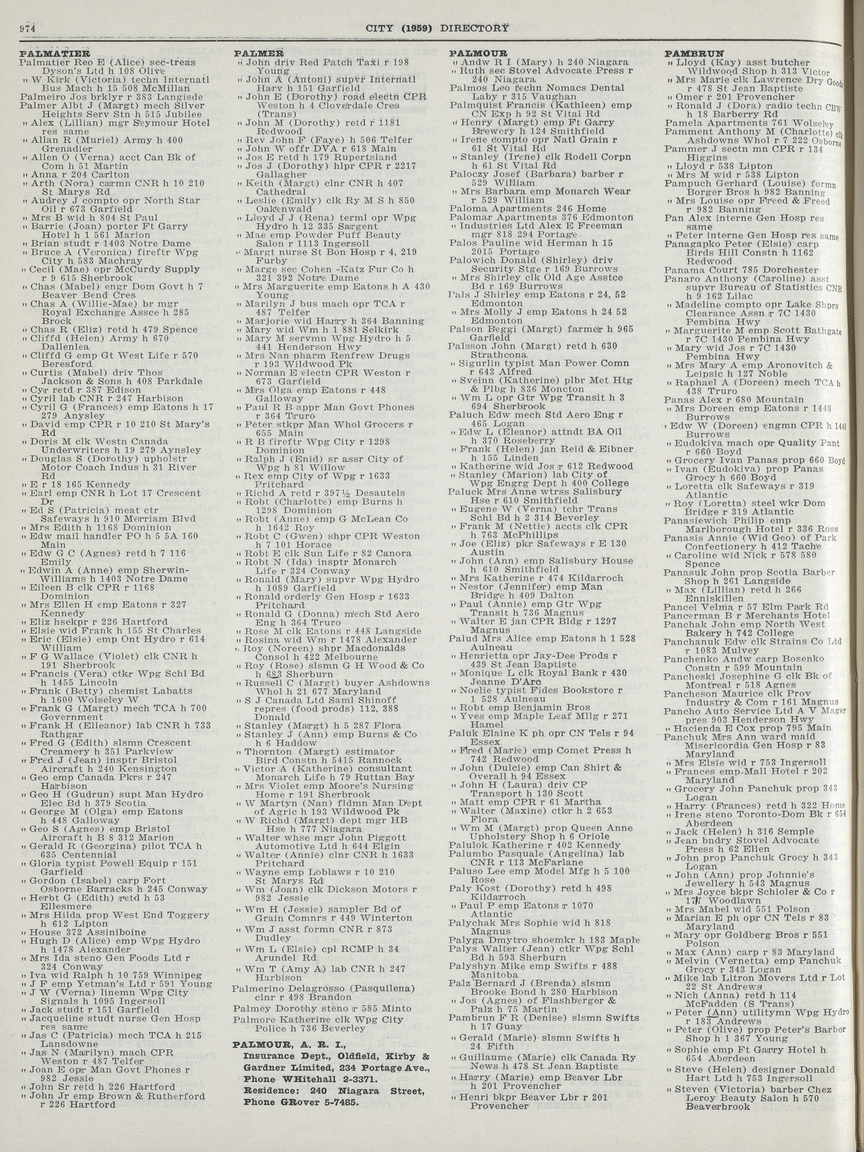 974
CITY (1959) DIRECTORY
PALMATIER
Palmatier Reo E (Alice) sec-treas
Dyson's Ltd h 108 Olive
" W Kirk (Victoria) techn Internatl
Bus Mach h 15 508 McMillan
Palmeiro Jos brklyr r 383 Langside
Palmer Albt J (Margt) mech Silver
Heights Serv Stn h 515 Jubilee
" Alex (Lillian) mgr Seymour Hotel
res same
" Allan R (Muriel) Army h 400
Grenadier
" Allen O (Verna) acct Can Bk of
Com h 51 Martin
" Anna r 204 Carlton
" Arth (Nora) carmn CNR h 10 210
St Marys Rd
" Audrey J compto opr North Star
Oil r 673 Garfield
" Mrs B wid h 804 St Paul
" Barrie (Joan) porter Ft Garry
Hotel h 1 561 Marion
" Brian studt r 1403 Notre Dame
" Bruce A (Veronica) fireftr Wpg
City h 583 Machray
" Cecil (Mae) opr McCurdy Supply
r 9 615 Sherbrook
" Chas (Mabel) engr Dom Govt h 7
Beaver Bend Cres
" Chas A (Willie-Mae) br mgr
Royal Exchange Assce h 285
Brock
" Chas R (Eliz) retd h 479 Spence
" Cliffd (Helen) Army h 670
Dallenlea
" Cliffd G emp Gt West Life r 570
Beresford
" Curtis (Mabel) driv Thos
Jackson & Sons h 408 Parkdale
" Cyr retd r 387 Edison
" Cyril lab CNR r 247 Harbison
" Cyril G (Frances) emp Eatons h 17
279 Anysley
" David emp CPR r 10 210 St Mary's
Rd
" Doris M clk Westn Canada
Underwriters h 19 279 Aynsley
" Douglas S (Dorothy) upholstr
Motor Coach Indus h 31 River
Rd
" E r 18 165 Kennedy
" Earl emp CNR h Lot 17 Crescent
Dr
" Ed S (Patricia) meat ctr
Safeways h 910 Merriam Blvd
" Mrs Edith h 1168 Dominion
" Edw mail handler PO h 5 5A 160
Main
" Edw G C (Agnes) retd h 7 116
Emily
" Edwin A (Anne) emp Sherwin-
Williams h 1403 Notre Dame
" Eileen B clk CPR r 1168
Dominion
" Mrs Ellen H emp Eatons r 327
Kennedy
" Eliz hsekpr r 226 Hartford
" Elsie wid Frank h 155 St Charles
" Eric (Elsie) emp Ont Hydro r 614
William
" F G Wallace (Violet) clk CNR h
191 Sherbrook
" Francis (Vera) ctkr Wpg Schl Bd
h 1455 Lincoln
" Frank (Betty) chemist Labatts
h 1600 Wolseley W
" Frank G (Margt) mech TCA h 700
Government
" Frank H (Elleanor) lab CNR h 733
Rathgar
" Fred G (Edith) slsmn Crescent
Creamery h 351 Parkview
" Fred J (Jean) insptr Bristol
Aircraft h 240 Kensington
" Geo emp Canada Pkrs r 247
Harbison
" Geo H (Gudrun) supt Man Hydro
Elec Bd h 379 Scotia
" George M (Olga) emp Eatons
h 448 Galloway
" Geo S (Agnes) emp Bristol
Aircraft h B 8 312 Marion
" Gerald R (Georgina) pilot TCA h
635 Centennial
" Gloria typist Powell Equip r 151
Garfield
" Gordon (Isabel) carp Fort
Osborne Barracks h 245 Conway
" Herbt G (Edith) retd h 53
Ellesmere
" Mrs Hilda prop West End Toggery
h 612 Lipton
" House 372 Assiniboine
" Hugh D (Alice) emp Wpg Hydro
h 1478 Alexander
" Mrs Ida steno Gen Foods Ltd r
324 Conway
" Iva wid Ralph h 10 759 Winnipeg
" J F emp Yetman's Ltd r 591 Young
" J W (Verna) linemn Wpg City
Signals h 1095 Ingersoll
" Jack studt r 151 Garfield
" Jacqueline studt nurse Gen Hosp
res same
" Jas C (Patricia) mech TCA h 215
Lansdowne
" Jas N (Marilyn) mach CPR
Weston r 487 Telfer
" Joan E opr Man Govt Phones r
982 Jessie
" John Sr retd h 226 Hartford
" John Jr emp Brown & Rutherford
r 226 Hartford
PALMER
" John driv Red Patch Taxi r 198
Young
" John A (Antoni) supvr Internatl
Harv h 151 Garfield
" John E (Dorothy) road electn CPR
Weston h 4 Cloverdale Cres
(Trans)
" John M (Dorothy) retd r 1181
Redwood
" Rev John F (Faye) h 506 Telfer
" John W offr DVA r 618 Main
" Jos E retd h 179 Rupertsland
" Jos J (Dorothy) hlpr CPR r 2217
Gallagher
" Keith (Margt) clnr CNR h 407
Cathedral
" Leslie (Emily) clk Ry M S h 850
Oakenwald
" Lloyd J J (Rena) terml opr Wpg
Hydro h 12 335 Sargent
" Mae emp Powder Puff Beauty
Salon r 1113 Ingersoll
" Margt nurse St Bon Hosp r 4, 219
Furby
" Marge sec Cohen -Katz Fur Co h
321 392 Notre Dame
" Mrs Marguerite emp Eatons h A 430
Young
" Marilyn J bus mach opr TCA r
487 Telfer
" Marjorie wid Harry h 364 Banning
" Mary wid Wm h 1 881 Selkirk
" Mary M servmn Wpg Hydro h 5
441 Henderson Hwy
" Mrs Nan pharm Renfrew Drugs
r 193 Wildwood Pk
" Norman E electn CPR Weston r
673 Garfield
" Mrs Olga emp Eatons r 448
Galloway
" Paul R B appr Man Govt Phones
r 364 Truro
" Peter stkpr Man Whol Grocers r
655 Main
" R B fireftr Wpg City r 1298
Dominion
" Ralph J (Enid) sr assr City of
Wpg h 81 Willow
" Rex emp City of Wpg r 1633
Pritchard
" Richd A retd r 397½ Desautels
" Robt (Charlotte) emp Burns h
1298 Dominion
" Robt (Anne) emp G McLean Co
h 1642 Roy
" Robt C (Gwen) shpr CPR Weston
h 7 101 Horace
" Robt E clk Sun Life r 82 Canora
" Robt N (Ida) insptr Monarch
Life r 324 Conway
" Ronald (Mary) supvr Wpg Hydro
h 1089 Garfield
" Ronald orderly Gen Hosp r 1633
Pritchard
" Ronald G (Donna) mech Std Aero
Eng h 364 Truro
" Rose M clk Eatons r 448 Langside
" Rosina wid Wm r 1478 Alexander
" Roy (Noreen) shpr Macdonalds
Consol h 422 Melbourne
" Roy (Rose) slsmn G H Wood & Co
h 683 Sherburn
" Russell C (Margt) buyer Ashdowns
Whol h 21 677 Maryland
" S J Canada Ltd Saml Shinoff
repres (food prods) 112, 388
Donald
" Stanley (Margt) h 5 287 Flora
" Stanley J (Ann) emp Burns & Co
h 6 Haddow
" Thornton (Margt) estimator
Bird Constn h 5415 Rannock
" Victor A (Katherine) consultant
Monarch Life h 79 Ruttan Bay
" Mrs Violet emp Moore's Nursing
Home r 191 Sherbrook
" W Martyn (Nan) fldmn Man Dept
of Agric h 193 Wildwood Pk
" W Richd (Margt) dept mgr HB
Hse h 777 Niagara
" Walter whse mgr John Piggott
Automotive Ltd h 644 Elgin
" Walter (Annie) clnr CNR h 1633
Pritchard
" Wayne emp Loblaws r 10 210
St Marys Rd
" Wm (Joan) clk Dickson Motors r
982 Jessie
" Wm H (Jessie) sampler Bd of
Grain Comnrs r 449 Winterton
" Wm J asst formn CNR r 873
Dudley
" Wm L (Elsie) cpl RCMP h 34
Arundel Rd
" Wm T (Amy A) lab CNR h 247
Harbison
Palmerino Delagrosso (Pasquilena)
clnr r 498 Brandon
Palmey Dorothy steno r 585 Minto
Palmore Katherine clk Wpg City
Police h 736 Beverley
PALMOUR, A. R. I.,
Insurance Dept., Oldfield, Kirby &
Gardner Limited, 234 Portage Ave.,
Phone WHitehall 2-3371.
Residence: 240 Niagara Street,
Phone GRover 5-7485.
PALMOUR
" Andw R I (Mary) h 240 Niagara
" Ruth sec Stovel Advocate Press r
240 Niagara
Palmos Leo techn Nomacs Dental
Labay r 315 Vaughan
Palmquist Francis (Kathleen) emp
CN Exp h 92 St Vital Rd
" Henry (Margt) emp Ft Garry
Brewery h 124 Smithfield
" Irene compto opr Natl Grain r
61 St Vital Rd
" Stanley (Irene) clk Rodell Corpn
h 61 St Vital Rd
Paloczy Josef (Barbara) barber r
529 William
" Mrs Barbara emp Monarch Wear
r 529 William
Paloma Apartments 246 Home
Palomar Apartments 376 Edmonton
" Industries Ltd Alex E Freeman
mgr 818 294 Portage
Palos Pauline wid Herman h 15
2015 Portage
Palowich Donald (Shirley) driv
Security Stge r 169 Burrows
" Mrs Shirley clk Old Age Asstce
Bd r 169 Burrows
Pals J Shirley emp Eatons r 24, 52
Edmonton
" Mrs Molly J emp Eatons h 24 52
Edmonton
Palson Beggi (Margt) farmer h 965
Garfield
Palsson John (Margt) retd h 630
Strathcona
" Sigurlin typist Man Power Comn
r 643 Alfred
" Sveinn (Katherine) plbr Met Htg
& Plbg h 836 Moncton
" Wm L opr Gtr Wpg Transit h 3
694 Sherbrook
Paluch Edw mech Std Aero Eng r
465 Logan
" Edw L (Eleanor) attndt BA Oil
h 370 Roseberry
" Frank (Helen) jan Reid & Eibner
h 155 Linden
" Katherine wid Jos r 612 Redwood
" Stanley (Marion) lab City of
Wpg Engrg Dept h 400 College
Paluck Mrs Anne wtrss Salisbury
Hse r 610 Smithfield
" Eugene W (Verna) tchr Trans
Schl Bd h 2 314 Beverley
" Frank M (Nettie) accts clk CPR
h 763 McPhillips
" Joe (Eliz) pkr Safeways r E 130
Austin
" John (Ann) emp Salisbury House
h 610 Smithfield
" Mrs Katherine r 474 Kildarroch
" Nestor (Jennifer) emp Man
Bridge h 409 Dalton
" Paul (Annie) emp Gtr Wpg
Transit h 736 Magnus
" Walter E jan CPR Bldg r 1297
Magnus
Palud Mrs Alice emp Eatons h 1 528
Aulneau
" Henrietta opr Jay-Dee Prods r
439 St Jean Baptiste
" Monique L clk Royal Bank r 430
Jeanne D'Arc
" Noelie typist Fides Bookstore r
1 528 Aulneau
" Robt emp Benjamin Bros
" Yves emp Maple Leaf Mllg r 271
Hamel
Paluk Elaine K ph opr CN Tels r 94
Essex
" Fred (Marie) emp Comet Press h
742 Redwood
" John (Dulcie) emp Can Shirt &
Overall h 94 Essex
" John H (Laura) driv CP
Transport h 130 Scott
" Matt emp CPR r 61 Martha
" Walter (Maxine) ctkr h 2 653
Flora
" Wm M (Margt) prop Queen Anne
Upholstery Shop h 6 Oriole
Palulok Katherine r 402 Kennedy
Palumbo Pasquale (Angelina) lab
CNR r 113 McFarlane
Paluso Lee emp Model Mfg h 5 100
Rose
Paly Kost (Dorothy) retd h 498
Kildarroch
" Paul P emp Eatons r 1070
Atlantic
Palychak Mrs Sophie wid h 818
Magnus
Palyga Dmytro shoemkr h 183 Maple
Palys Walter (Jean) ctkr Wpg Schl
Bd h 593 Sherburn
Palyshyn Mike emp Swifts r 488
Manitoba
Palz Bernard J (Brenda) slsmn
Brooke Bond h 280 Harbison
" Jos (Agnes) of Flashberger &
Palz h 75 Martin
Pambrun F R (Denise) slsmn Swifts
h 17 Guay
" Gerald (Marie) slsmn Swifts h
24 Fifth
" Guillaume (Marie) clk Canada Ry
News h 478 St Jean Baptiste
" Harry (Marie) emp Beaver Lbr
h 201 Provencher
" Henri bkpr Beaver Lbr r 201
Provencher
PAMBRUN
" Lloyd (Kay) asst butcher
Wildwood Shop h 313 Victor
" Mrs Marie clk Lawrence Dry Goods
r 478 St Jean Baptiste
" Omer r 201 Provencher
" Ronald J (Dora) radio techn CBW
h 18 Barberry Rd
Pamela Apartments 761 Wolseley
Pamment Anthony M (Charlotte) clk
Ashdowns Whol r 7 222 Osborne
Pammer J sectn mn CPR r 134
Higgins
" Lloyd r 538 Lipton
" Mrs M wid r 538 Lipton
Pampuch Gerhard (Louise) formn
Borger Bros h 982 Banning
" Mrs Louise opr Freed & Freed
r 982 Banning
Pan Alex interne Gen Hosp res
same
" Peter interne Gen Hosp res same
Panagapko Peter (Elsie) carp
Birds Hill Constn h 1162
Redwood
Panama Court 785 Dorchester
Panaro Anthony (Caroline) asst
supvr Bureau of Statistics CNR
h 9 162 Lilac
" Madeline compto opr Lake Shprs
Clearance Assn r 7C 1430
Pembina Hwy
" Marguerite M emp Scott Bathgate
r 7C 1430 Pembina Hwy
" Mary wid Jos r 7C 1430
Pembina Hwy
" Mrs Mary A emp Aronovitch &
Leipsic h 127 Noble
" Raphael A (Doreen) mech TCA h
438 Truro
Panas Alex r 680 Mountain
" Mrs Doreen emp Eatons r 1448
Burrows
" Edw W (Doreen) engmn CPR h 1448
Burrows
" Eudokiva mach opr Quality Pant
r 660 Boyd
" Grocery Ivan Panas prop 660 Boyd
" Ivan (Eudokiva) prop Panas
Grocy h 660 Boyd
" Loretta clk Safeways r 319
Atlantic
" Roy (Loretta) steel wkr Dom
Bridge r 319 Atlantic
Panasiewich Philip emp
Marlborough Hotel r 336 Ross
Panasis Annie (Wid Geo) of Park
Confectionery h 412 Tache
" Caroline wid Nick r 578 580
Spence
Panasuk John prop Scotia Barber
Shop h 261 Langside
" Max (Lillian) retd h 266
Enniskillen
Pancel Velma r 57 Elm Park Rd
Pancerman B Merchants Hotel
Panchak John emp North West
Bakery h 742 College
Panchanuk Edw clk Strains Co Ltd
r 1083 Mulvey
Panchenko Andw carp Bosenko
Constn r 599 Mountain
Pancheski Josephine G clk Bk of
Montreal r 518 Agnes
Pancheson Maurice clk Prov
Industry & Com r 161 Magnus
Pancho Auto Service Ltd A V Mager
pres 903 Henderson Hwy
" Hacienda E Cox prop 795 Main
Panchuk Mrs Ann ward maid
Misericordia Gen Hosp r 83
Maryland
" Mrs Elsie wid r 753 Ingersoll
" Frances emp Mall Hotel r 202
Maryland
" Grocery John Panchuk prop 343
Logan
" Harry (Frances) retd h 322 Home
" Irene steno Toronto-Dom Bk r 654
Aberdeen
" Jack (Helen) h 316 Semple
" Jean bndry Stovel Advocate
Press h 62 Ellen
" John prop Panchuk Grocy h 343
Logan
" John (Ann) prop Johnnie's
Jewellery h 543 Magnus
" Mrs Joyce bkpr Schioler & Co r
177 Woodlawn
" Mrs Mabel wid 551 Polson
" Marian E ph opr CN Tels r 83
Maryland
" Mary opr Goldberg Bros r 551
Polson
" Max (Ann) carp r 83 Maryland
" Melvin (Vernetta) emp Panchuk
Grocy r 343 Logan
" Mike lab Litron Movers Ltd r Lot
22 St Andrews
" Nich (Anna) retd h 114
McFadden (S Trans)
" Peter (Ann) utilitymn Wpg Hydro
r 183 Andrews
" Peter (Olive) prop Peter's Barber
Shop h 1 367 Young
" Sophie emp Ft Garry Hotel h
654 Aberdeen
" Steve (Helen) designer Donald
Hart Ltd h 753 Ingersoll
" Steven (Victoria) barber Chez
Leroy Beauty Salon h 570
Beaverbrook